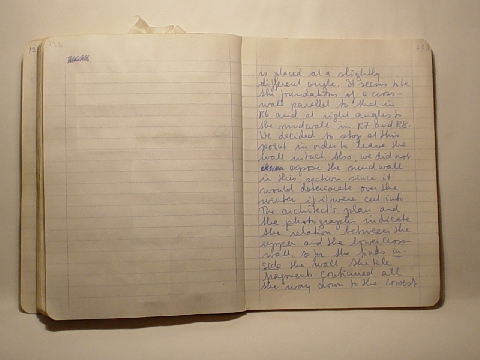 is placed at a slightly
different angle. It seems to be
the foundations of a cross-
wall parallel to that in
K6 and at right angles to
the mudwall in K7 and K8.
We decided to stop at this
point in order to leave the
wall intact. Also, we did not
expose the mud wall
in this section since it
would deteriorate over the
winter if it were cut into.
The architect's plan and
the photographs indicate
the relation between the
upper and the lower cross-
wall. As for the finds in-
side the wall the tile
fragments continued all
the way down to the lowest